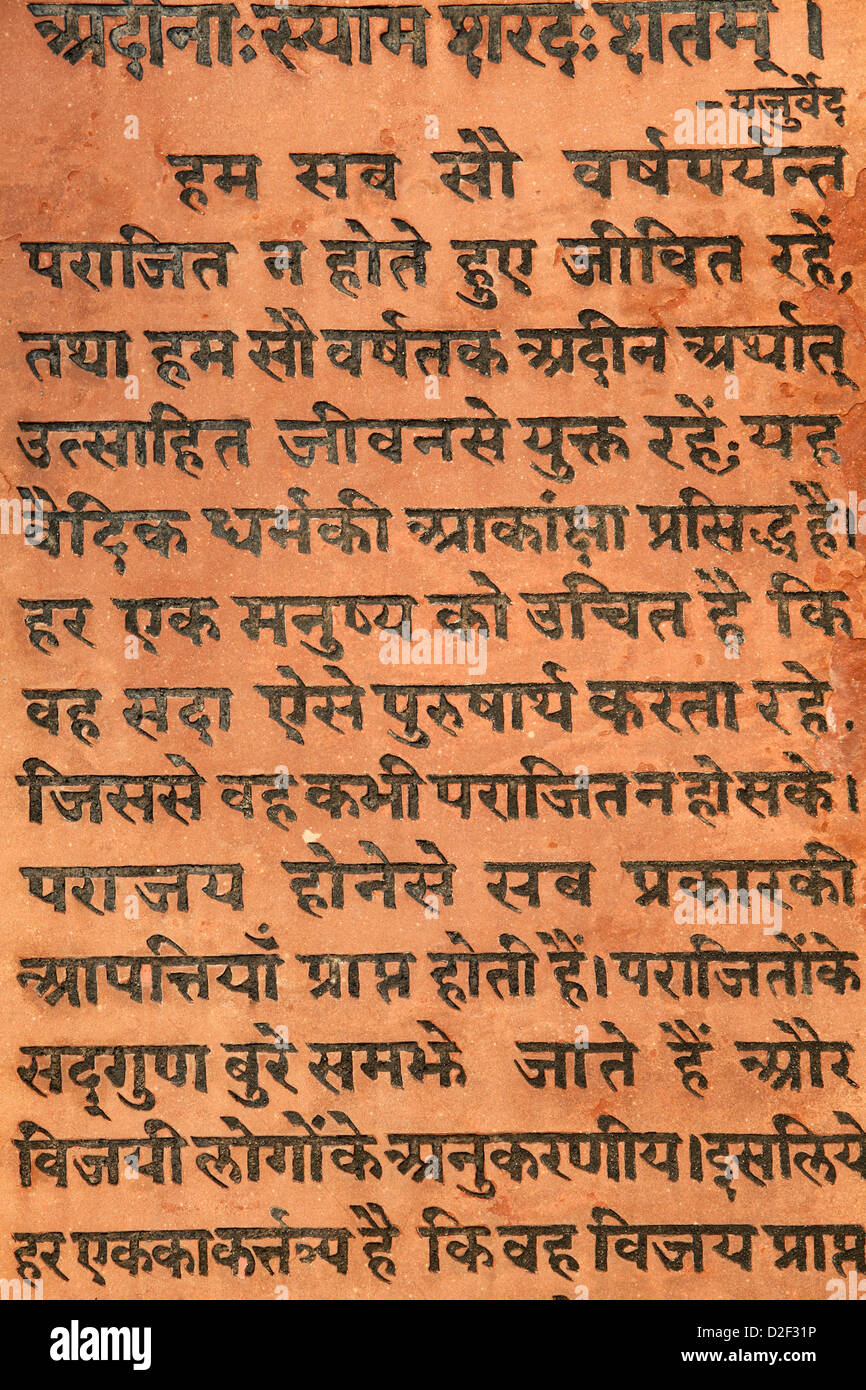 अदीनाः स्याम शरदः शतम् ।
- यजुर्वेद
हम सब सौ वर्षपर्यन्त
पराजित न होते हुए जीवित रहें,
तथा हम सौ वर्षतक अदीन अर्थात्
उत्साहित जीवनसे युक्त रहें; यह
वैदिक धर्मकी आकांक्षा प्रसिद्ध है।
हर एक मनुष्य को उचित है कि
वह सदा ऐसे पुरुषार्थ करता रहे.
जिससे वह कभी पराजित न हो सके।
पराजय होनेसे सब प्रकारकी
आपत्तियाँ प्राप्त होती हैं। पराजितोंके
सद्गुण बुरे समझे जाते हैं और
विजयी लोगोंके अनुकरणीय। इसलिये
हर एकका कर्त्तव्य है कि वह विजय प्राप्त
alamy
Image ID: D2F31P
www.alamy.com